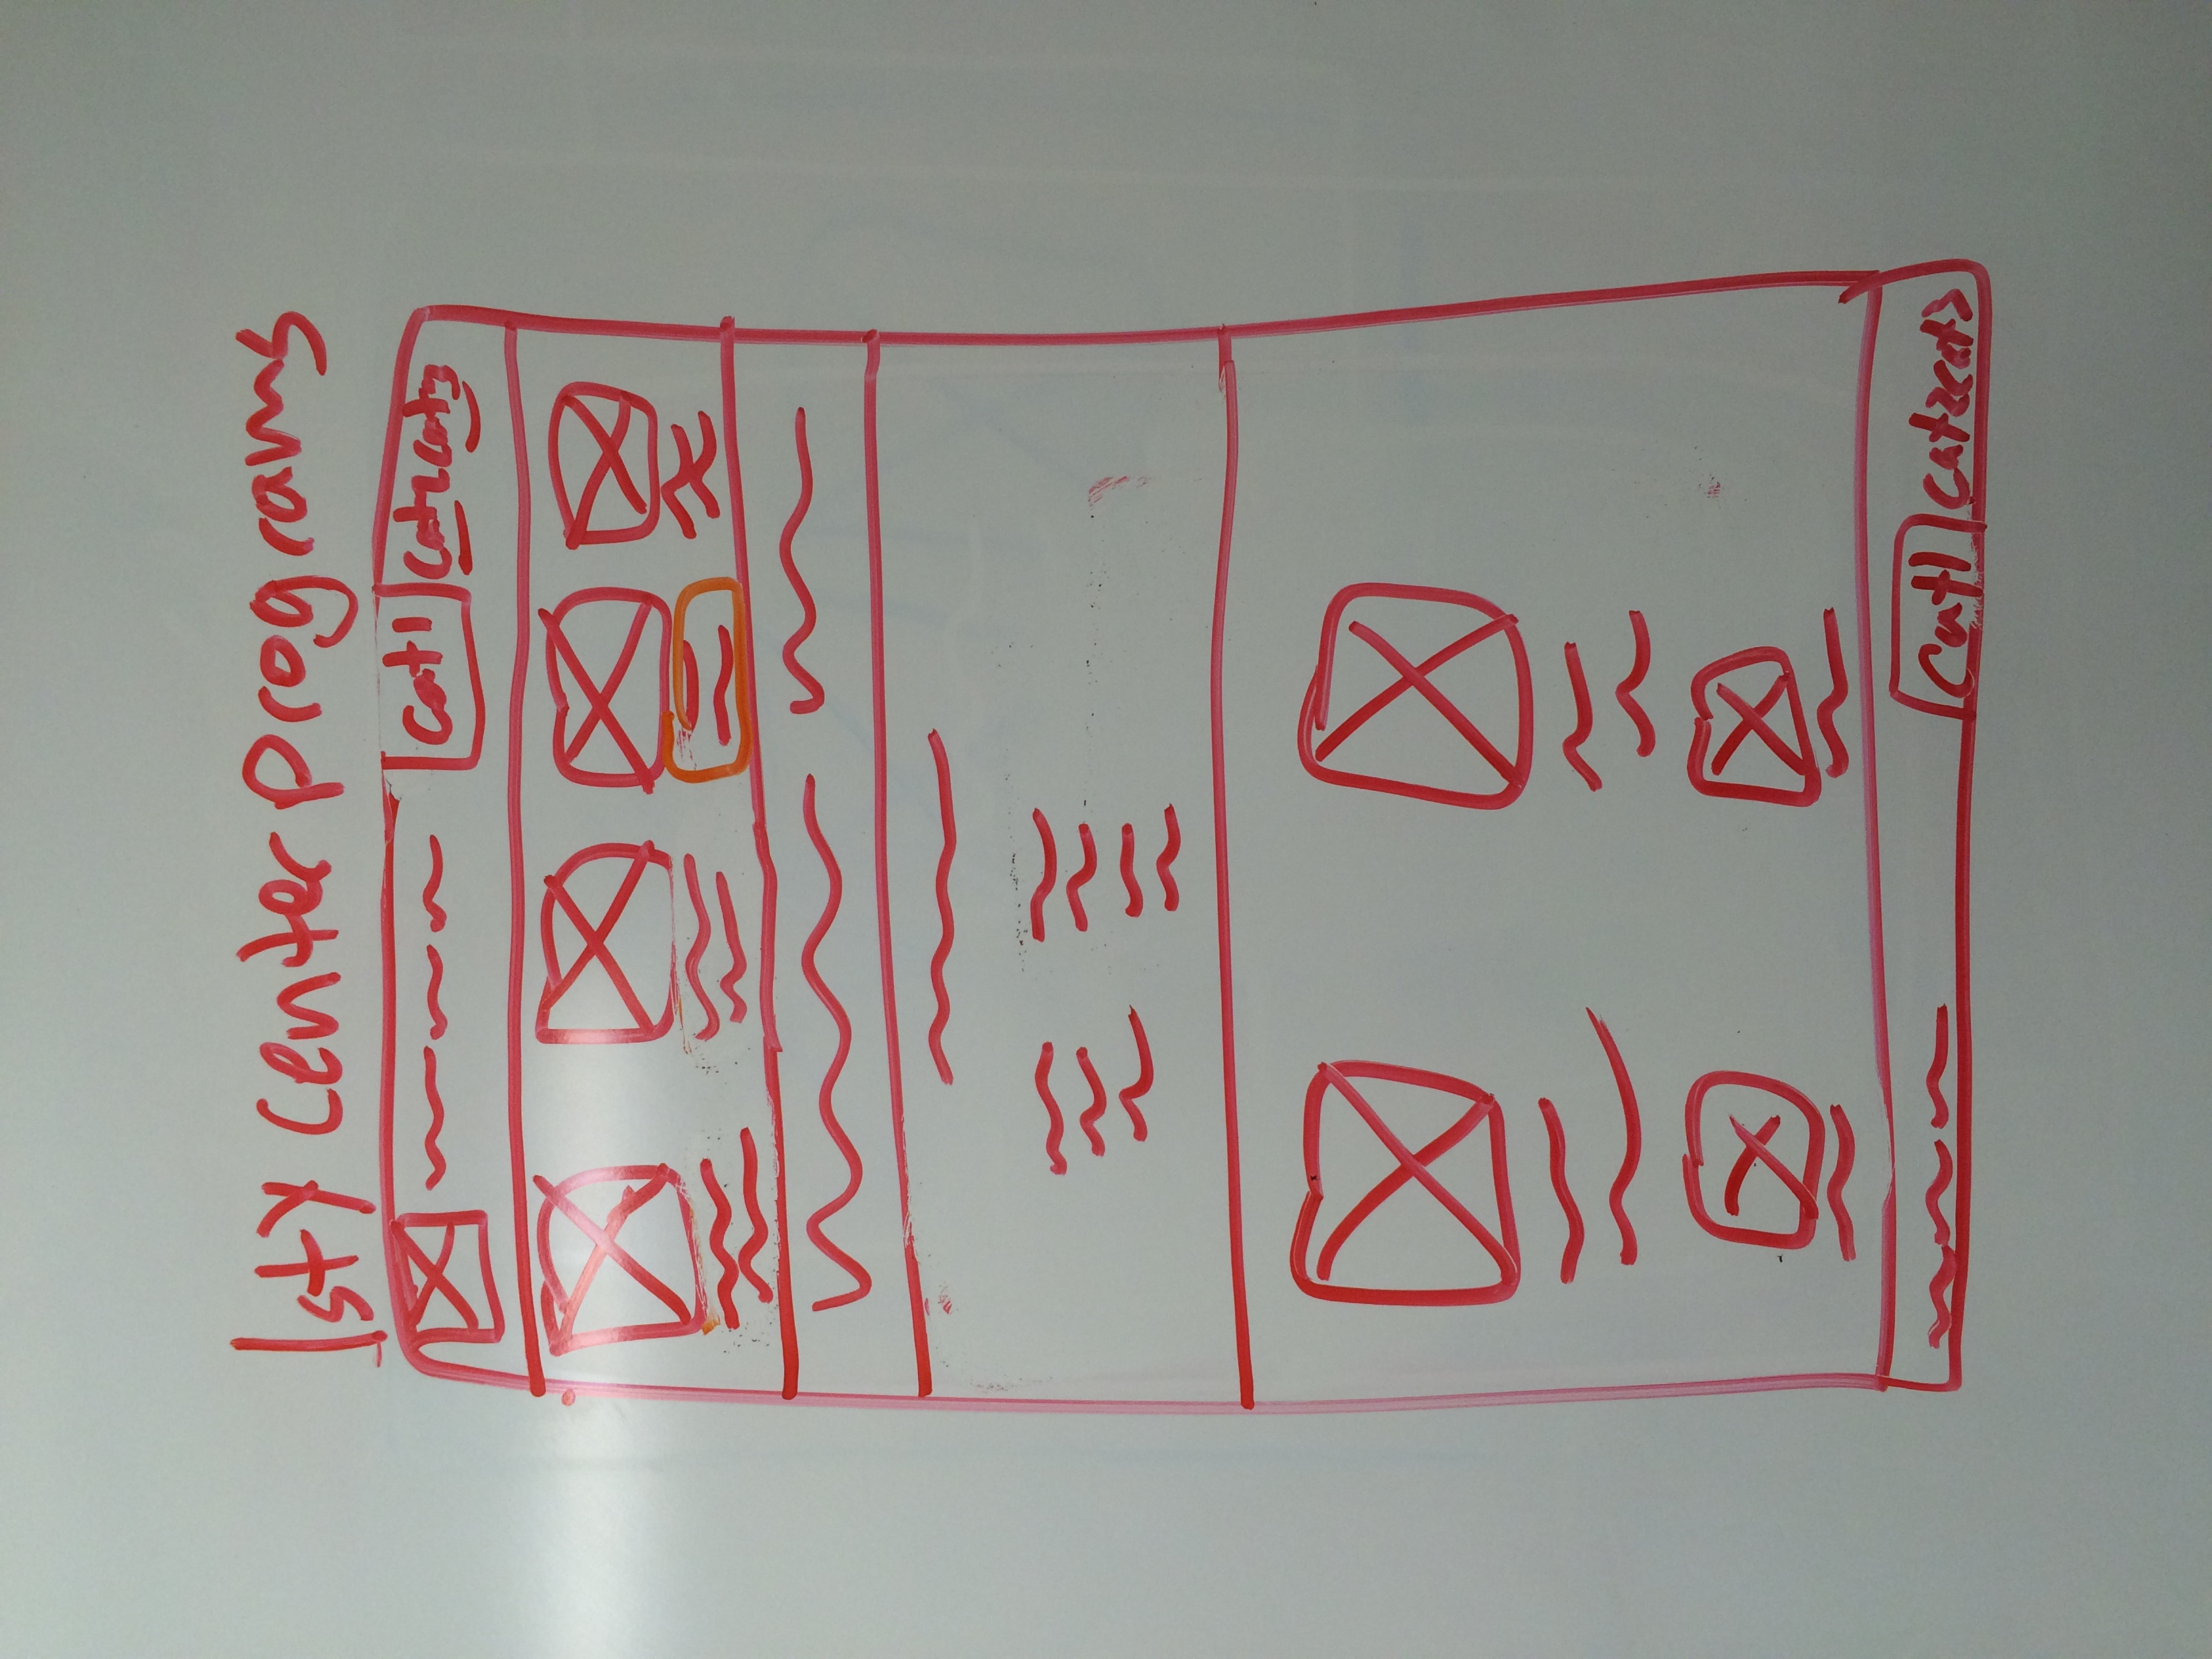 1sty center programs
cat1 cat2 cat3
cat1 cat2 cat3